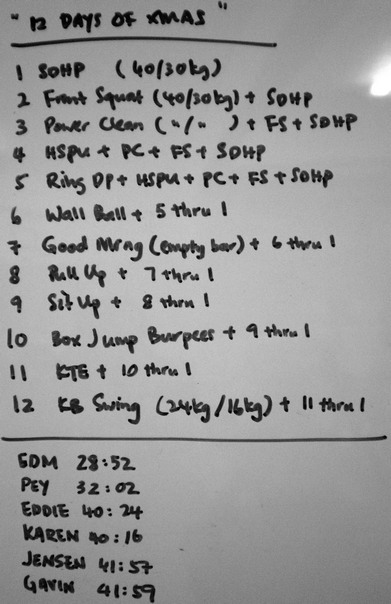 "12 DAYS OF XMAS"
1 SOHP (40/30kg)
2 Front Squat (40/30kg) + SOHP
3 Power Clean ("/") + FS + SOHP
4 HSPU + PC + FS + SOHP
5 Ring DP + HSPU + PC + FS + SOHP
6 Wall Ball + 5 thru 1
7 Good Mrng (empty bar) + 6 thru 1
8 Pull Up + 7 thru 1
9 Sit Up + 8 thru 1
10 Box Jump Burpees + 9 thru 1
11 KTE + 10 thru 1
12 KB Swing (24kg/16kg) + 11 thru 1
EDM 28:52
PEY 32:02
EDDIE 40:24
KAREN 40:16
JENSEN 41:57
GAVIN 41:59